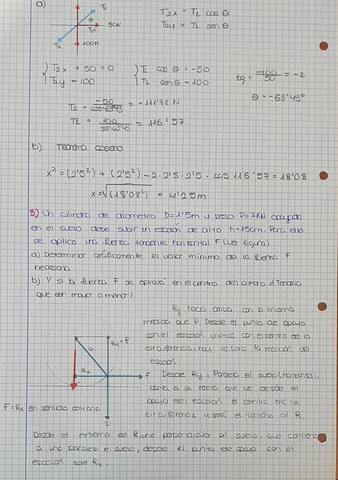 a)
T₂
θ
50N
100N
T₂
T₂x = T₂ cos θ
T₂y = T₂ sen θ
T₂x + 50 = 0
T₂y - 100
T₂ cos θ = -50
T₂ · sen θ = -100
tg = -100/-50 = -2
θ = -63'43°
T₂ = -50/cos-63'43 = -111'78 N
T₂ = 100/ = 116'57
b) Teorema coseno
x² = (2'5²) + (2'5²) - 2 · 2'5 · 2'5 · cos 116'57 = 18'08
x = √(18'08²) = 4'25m
Un cilindro de diametro D=1'5m y peso P=7KN apoyado
en el suelo debe subir un escalón de alto h=15cm. Para ello
se aplica una fuerza tangente horizontal F (ver figura)
a) Determinar gráficamente el valor mínimo de la fuerza F
necesaria
b) Y si la fuerza F se aplicara en el centro del cilindro ¿Tendría
que ser mayor o menor?
Ry hacia arriba con la misma
medida que P. Desde el punto de apoyo
con el escalón unimos con el centro de la
circunferencia, hay estará la reacción del
escalón
Ry = P
Rx
F
P
F = Rx en sentido contrario
Desde Ry, Paralela al suelo horizontal,
corta a la recta que va desde el
apoyo del escalón el centro de la
circunferencia y será el tamaño de R.
Desde el extremo de R, una perpendicular al suelo, que corte
a una paralela al suelo, desde el punto de apoyo con el
escalón sale Rx.